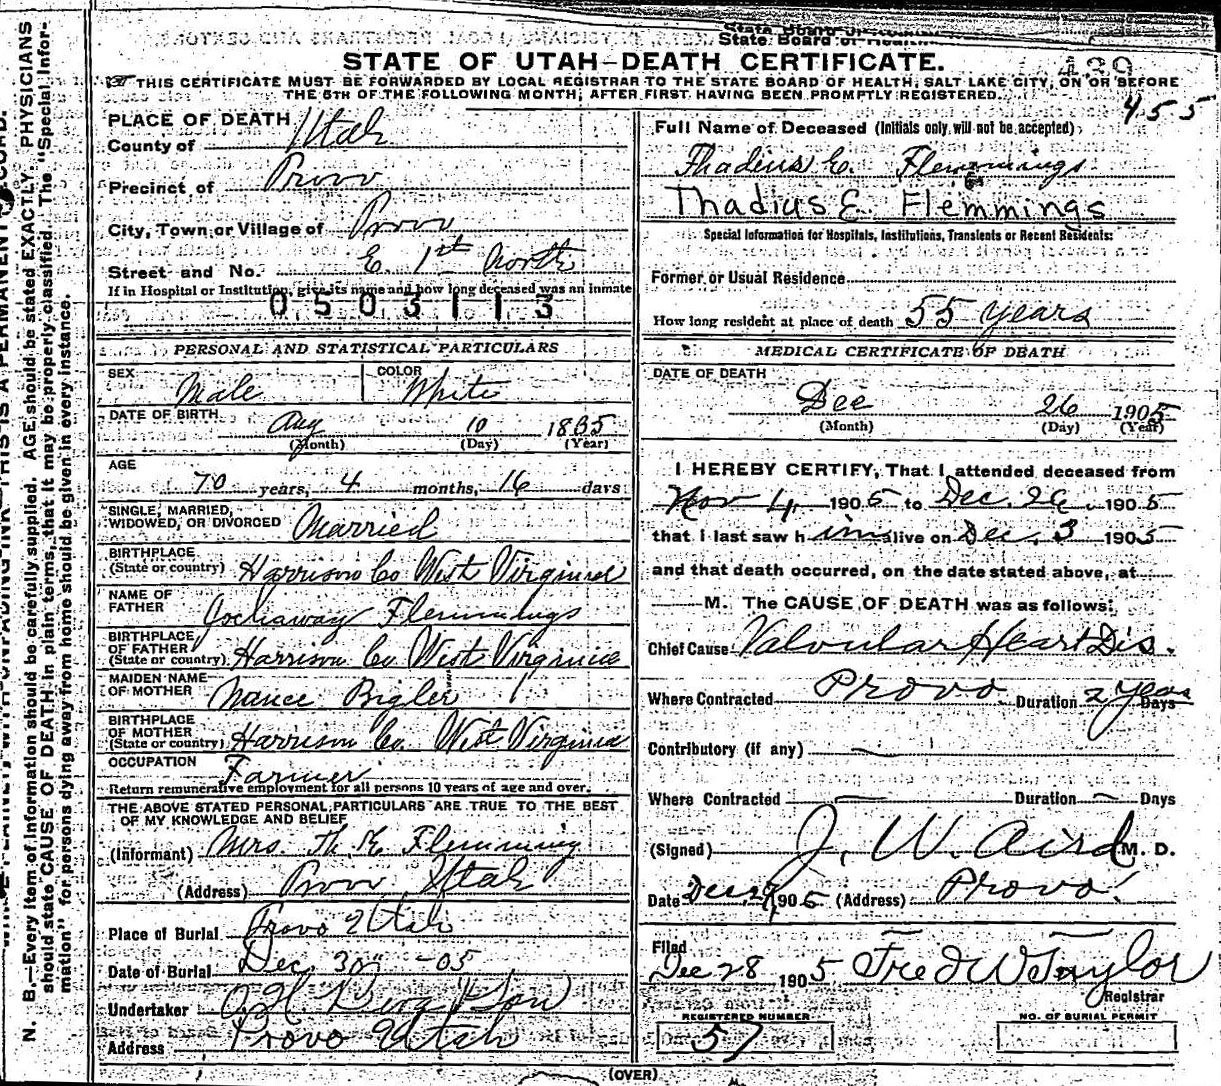 State Board of Health
STATE OF UTAH—DEATH CERTIFICATE.
THIS CERTIFICATE MUST BE FORWARDED BY LOCAL REGISTRAR TO THE STATE BOARD OF HEALTH, SALT LAKE CITY, ON OR BEFORE
THE 5TH OF THE FOLLOWING MONTH, AFTER FIRST HAVING BEEN PROMPTLY REGISTERED.
455
PLACE OF DEATH
County of Utah
Precinct of Provo
City, Town or Village of Provo
Street and No. E. 1st North
If in Hospital or Institution, give its name and how long deceased was an inmate
0503113
PERSONAL AND STATISTICAL PARTICULARS
SEX Male COLOR White
DATE OF BIRTH Aug 10 1835
(Month) (Day) (Year)
AGE
70 years, 4 months, 16 days
SINGLE, MARRIED,
WIDOWED, OR DIVORCED Married
BIRTHPLACE
(State or country) Harrison Co West Virginia
NAME OF
FATHER Flemmings
BIRTHPLACE
OF FATHER
(State or country) Harrison Co West Virginia
MAIDEN NAME
OF MOTHER Nance Bigler
BIRTHPLACE
OF MOTHER
(State or country) Harrison Co. West Virginia
OCCUPATION
Farmer
Return remunerative employment for all persons 10 years of age and over.
THE ABOVE STATED PERSONAL PARTICULARS ARE TRUE TO THE BEST
OF MY KNOWLEDGE AND BELIEF
(Informant) Mrs. Th. E Flemming
(Address) Provo Utah
Place of Burial Provo Utah
Date of Burial Dec 30 -05
Undertaker Berg & Son
Address Provo Utah
Full Name of Deceased (Initials only will not be accepted)
Thadius E. Flemmings
Thadius E. Flemmings
Special Information for Hospitals, Institutions, Transients or Recent Residents:
Former or Usual Residence
How long resident at place of death 55 years
MEDICAL CERTIFICATE OF DEATH
DATE OF DEATH
Dec 26 1905
(Month) (Day) (Year)
I HEREBY CERTIFY, That I attended deceased from
Nov 4, 1905 to Dec. 26 1905
that I last saw him alive on Dec. 3 1905
and that death occurred, on the date stated above, at
M. The CAUSE OF DEATH was as follows:
Chief Cause Valvular Heart Dis.
Where Contracted Provo Duration 2 years Days
Contributory (if any)
Where Contracted Duration Days
(Signed) J. W. Aird M. D.
Date Dec 1905 (Address) Provo
Filed
Dec 28 1905 Fred W Taylor
Registrar
REGISTERED NUMBER
57
NO. OF BURIAL PERMIT
(OVER)
N. B.—Every item of information should be carefully supplied. AGE should be stated EXACTLY. PHYSICIANS
should state CAUSE OF DEATH in plain terms, that it may be properly classified. The "Special Infor-
mation" for persons dying away from home should be given in every instance.